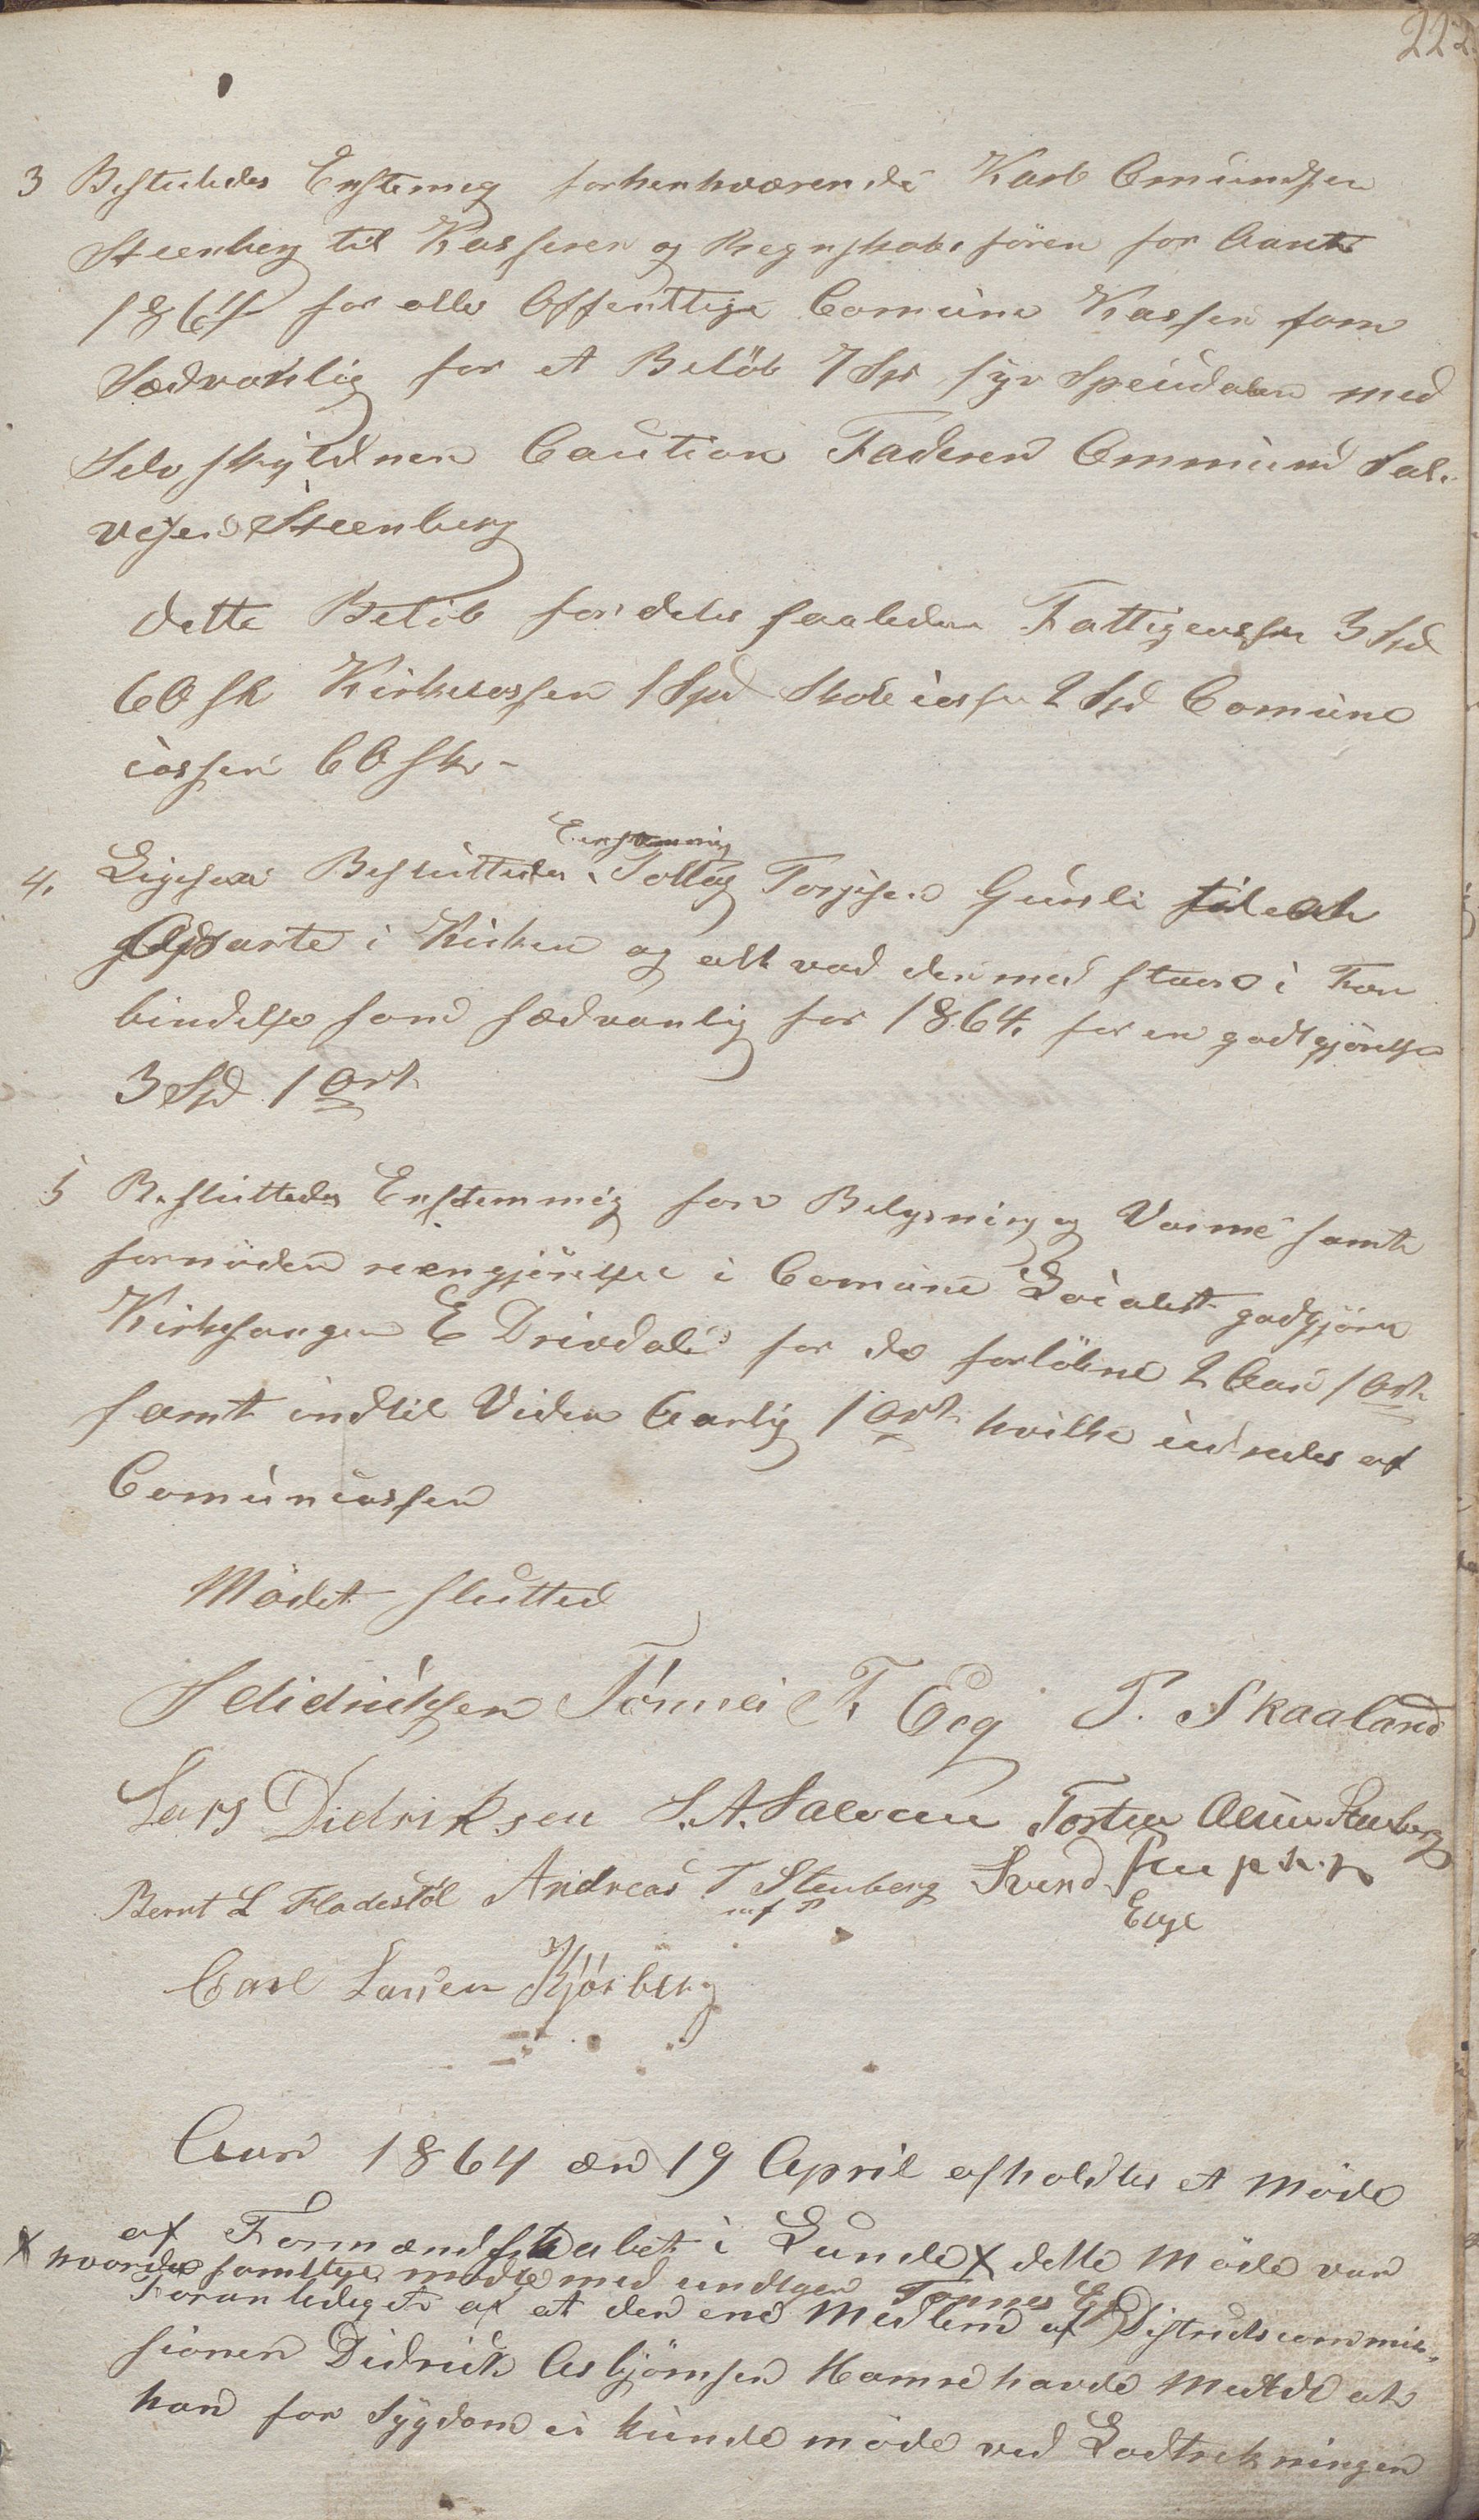 222
3 Besluttedes Enstemig forhenhværende Karl Omundsen
Steenberg til Kasserer og Regnskabsfören for Aaret
1864 for alle Offentlige Comune Kasser som
Sædvanlig for et Belöb 7 Spd syv Speciedaler med
Selvskyldner Caution Faderen Ommund Sal-
vesen Steenberg
dette Belöb fordeles saaledes Fattigcassen 3 Spd
60 sk Kirkecassen 1 Spd Skolecassen 2 Spd Comune
cassen 60 sk -
Enstemmig
4. Ligesaa Besluttedes Tollag Torjusen Gursli til at
opvarte i Kirken og alt vad der med staar i For
bindelse som sædvanlig for 1864. for en godtgjörelse
3 Spd 1 Ort
5 Besluttedes Enstemmig for Belysning og Varme samt
fornöden reengjörelse i Comune Localet godgjöres
Kirkesanger E Drivdal for de forlöbne 2 Aar 1 Ort
samt indtil Vider Aarlig 1 Ort hvilke udredes af
Comunecassen
Mödet slutted
S Didriksen Tönnes T. Eeg T. Skaaland
Lars Didriksen S. A. Salvesen Torten Steenberg
Bernt L Fladestöl Andreas T Stenberg Svend
m f P Eege
Carl Larsen Kjörberg
Aar 1864 den 19 April afholdtes et Möde
af Formændskabet i Lunde X dette Möde var
X hvorda samtlige mödte med undtgen Tönnes Eg
Foranlediget af at den ene Medlem af Districtscommis-
sionen Didrik Asbjörnsen Hamre havde Meldt at
han for Sygdom ei kunde möde ved Lodtrekningen